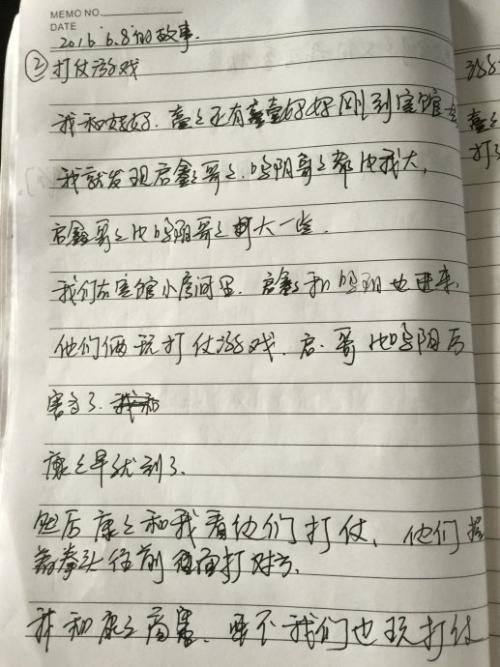 MEMO NO.
DATE
2016.6.8的故事.
② 打仗游戏
我和好好.童々还有童童好好刚到宾馆
我就发现启鑫哥々.鸣阳哥々都比我大,
启鑫哥々比鸣阳哥々大一些.
我们在宾馆小房间里.启鑫和鸣阳也进来.
他们俩玩打仗游戏.启.哥比鸣阳厉
害多了.我和
康々早就到了.
然后康々和我看他们打仗,他们
拳头往前面打对方.
我和康々商量,要不我们也玩打仗